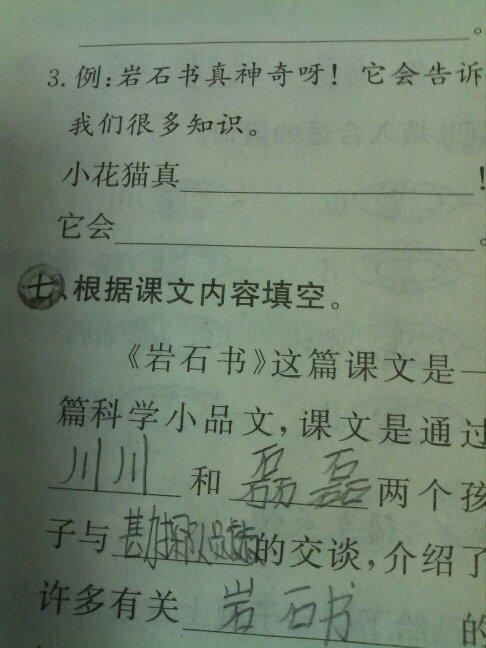 。
3. 例:岩石书真神奇呀! 它会告诉
我们很多知识。
小花猫真!
它会。
七、根据课文内容填空。
《岩石书》这篇课文是一
篇科学小品文,课文是通过
川川 和 磊磊 两个孩
子与勘探队员叔叔的交谈,介绍了
许多有关 岩石书 的